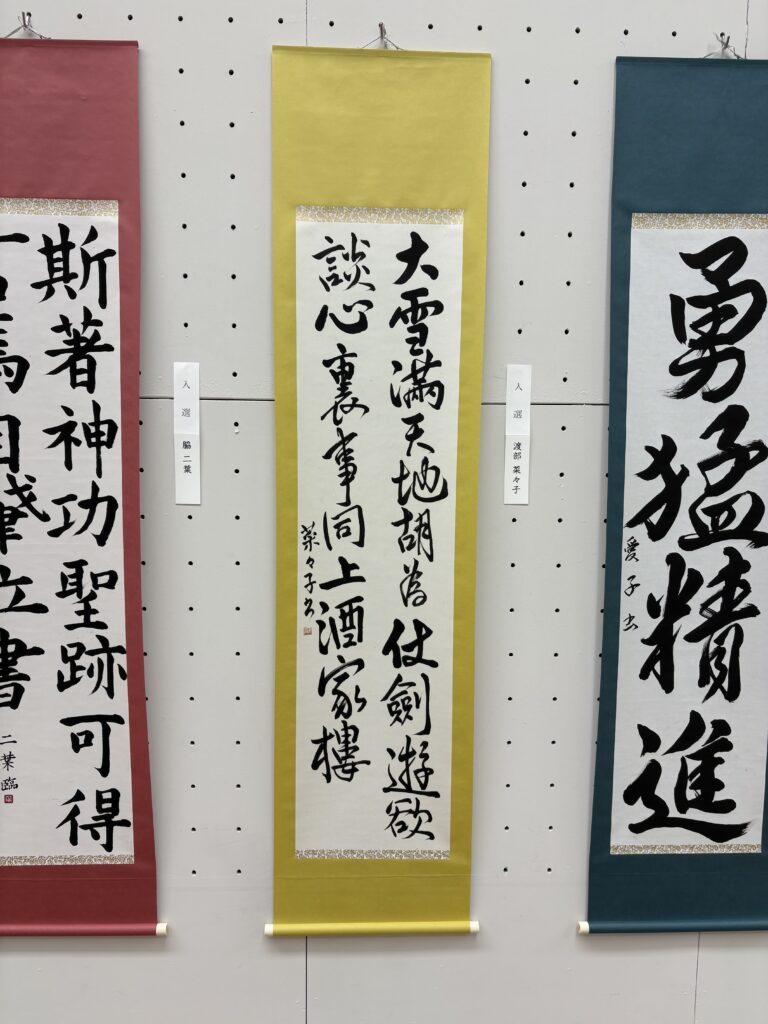 勇猛精進
愛子書
入選
渡部 菜々子
大雪満天地胡為仗劍遊欲
談心裏事同上酒家樓
菜々子書
入選
脇 二葉
斯著神功聖跡可得
二葉臨